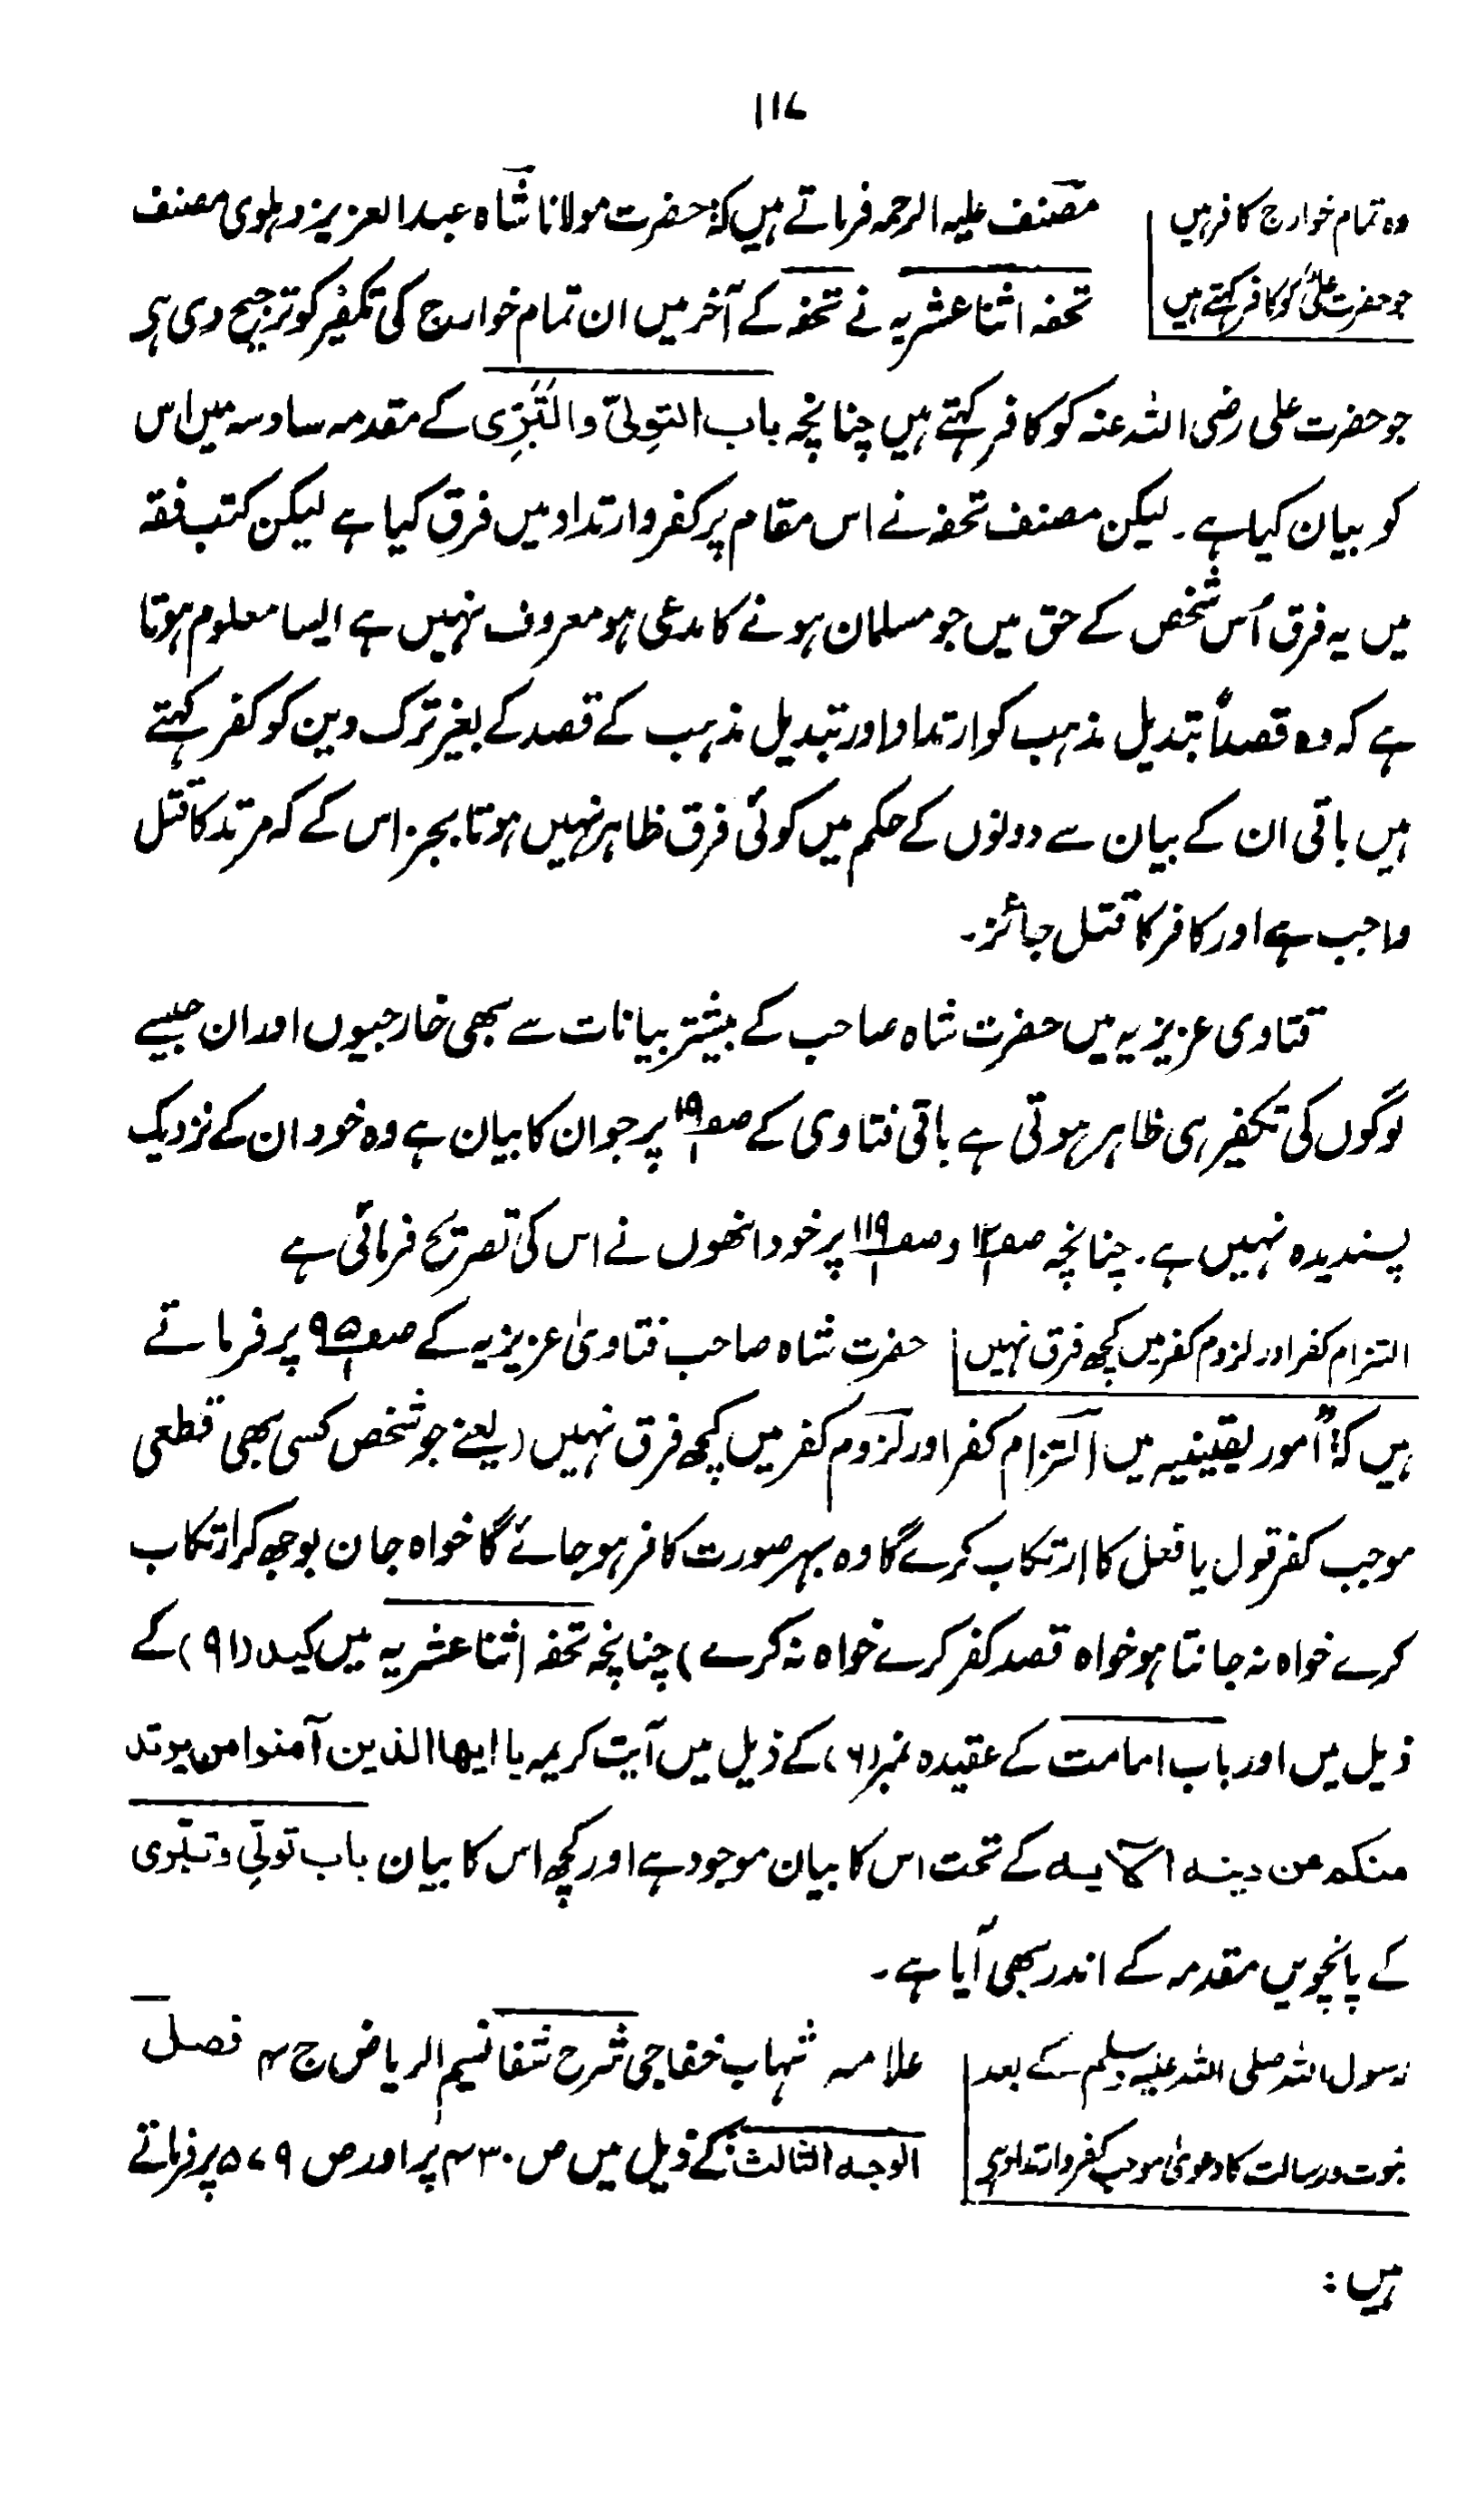 ۱۱۷
وہ تمام خوارج کافر ہیں
جو حضرت علیؓ کو کافر کہتے ہیں
مصنف علیہ الرحمہ فرماتے ہیں کہ: حضرت مولانا شاہ عبد العزیز دہلوی مصنف
تحفہ اثنا عشریہ نے تحفہ کے آخر میں ان تمام خوارج کی تکفیر کو ترجیح دی ہے
جو حضرت علی رضی اللہ عنہ کو کافر کہتے ہیں چنانچہ باب التولّی والتَّبَرِّی کے مقدمہ سادسہ میں اس
کو بیان کیا ہے۔ لیکن مصنف تحفہ نے اس مقام پر کفر و ارتداد میں فرق کیا ہے لیکن کتب فقہ
میں یہ فرق اُس شخص کے حق میں جو مسلمان ہونے کا مدعی ہو معروف نہیں ہے ایسا معلوم ہوتا
ہے کہ وہ قصداً تبدیل مذہب کو ارتداد اور تبدیل مذہب کے قصد کے بغیر ترک دین کو کفر کہتے
ہیں باقی ان کے بیان سے دونوں کے حکم میں کوئی فرق ظاہر نہیں ہوتا بجز اس کے کہ مرتد کا قتل
واجب ہے اور کافر کا قتل جائز۔
فتاوی عزیزیہ میں حضرت شاہ صاحب کے بیشتر بیانات سے بھی خارجیوں اور ان جیسے
لوگوں کی تکفیر ہی ظاہر ہوتی ہے باقی فتاوی کے صفحہ ۱۹ پر جو ان کا بیان ہے وہ خود ان کے نزدیک
پسندیدہ نہیں ہے۔ چنانچہ صفحہ ۱۲ و صفحہ ۱۱۹ پر خود انھوں نے اس کی تصریح فرمائی ہے
التزام کفر اور لزوم کفر میں کچھ فرق نہیں
حضرت شاہ صاحب فتاویٰ عزیزیہ کے صفحہ ۹۵ پر فرماتے
ہیں کہ: "امور یقینیہ میں التزام کفر اور لزوم کفر میں کچھ فرق نہیں (یعنے جو شخص کسی بھی قطعی
موجب کفر قول یا فعل کا ارتکاب کرے گا وہ بہر صورت کافر ہو جائے گا خواہ جان بوجھ کر ارتکاب
کرے خواہ نہ جانتا ہو خواہ قصد کفر کرے خواہ نہ کرے) چنانچہ تحفہ اثنا عشریہ میں کید (۹۱) کے
ذیل میں اور باب امامت کے عقیدہ نمبر (۶) کے ذیل میں آیت کریمہ یا ایھا الذین آمنوا من یرتد
منکم عن دینہ الآیہ کے تحت اس کا بیان موجود ہے اور کچھ اس کا بیان باب تولّی و تبرّی
کے پانچویں مقدمہ کے اندر بھی آیا ہے۔
رسول اللہ صلی اللہ علیہ وسلم کے بعد
نبوت و رسالت کا دعویٰ موجب کفر و ارتداد ہے
علامہ شہاب خفاجی شرح شفا نسیم الریاض ج ۴ فصل
الوجہ الثالث کے ذیل میں ص ۴۳۰ پر اور ص ۵۷۹ پر فرماتے
ہیں: